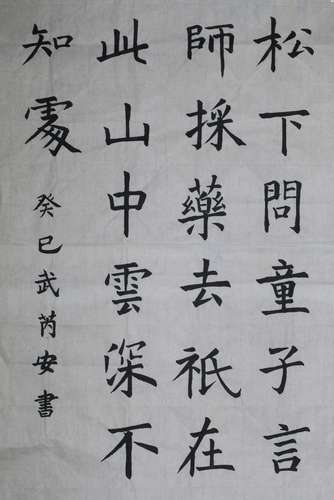 松下問童子言
師採藥去祇在
此山中雲深不
知處
癸巳武芮安書